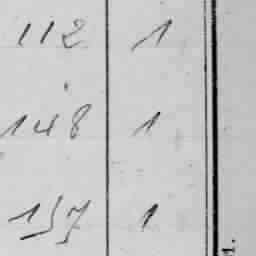 112 1
148 1
157 1
1.